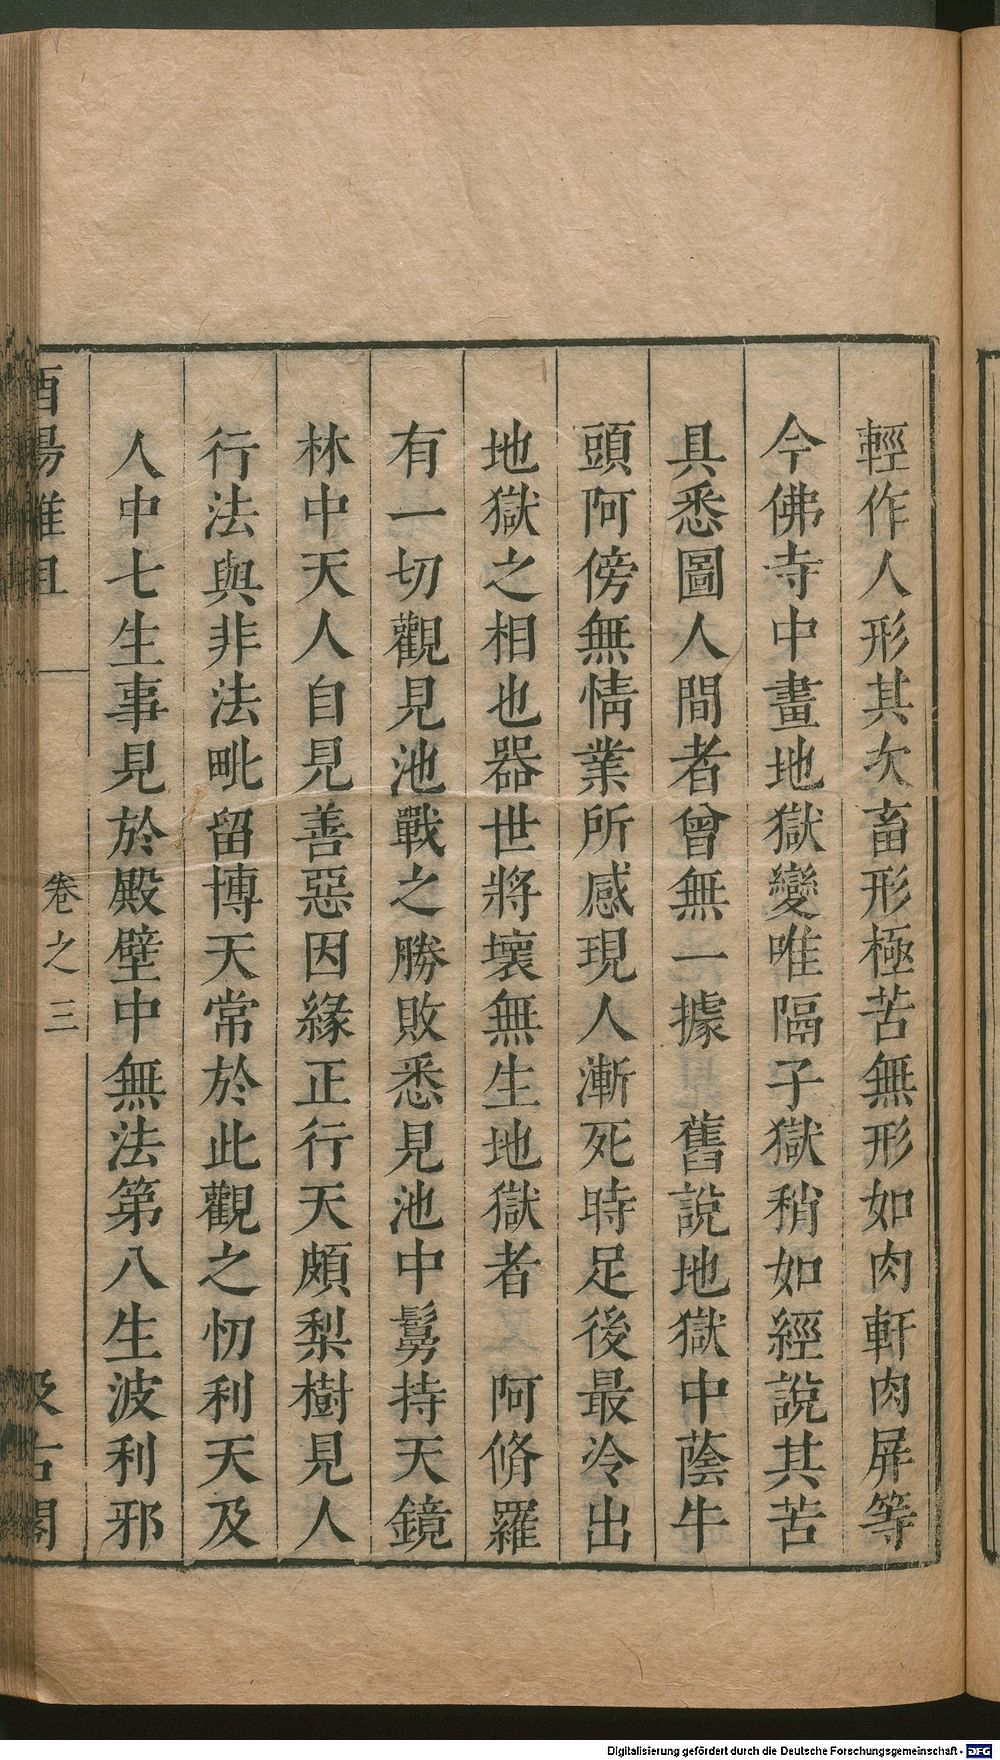 輕作人形其次畜形極苦無形如肉軒肉屏等
今佛寺中畫地獄變唯隔子獄稍如經說其苦
具悉圖人間者曾無一據　舊說地獄中蔭牛
頭阿傍無情業所感現人漸死時足後最冷出
地獄之相也器世將壞無生地獄者　阿脩羅
有一切觀見池戰之勝敗悉見池中鬘持天鏡
林中天人自見善惡因緣正行天頗梨樹見人
行法與非法毗留博天常於此觀之忉利天及
人中七生事見於殿壁中無法第八生波利邪
酉陽雜俎　卷之三　汲古閣
Digitalisierung gefördert durch die Deutsche Forschungsgemeinschaft - DFG